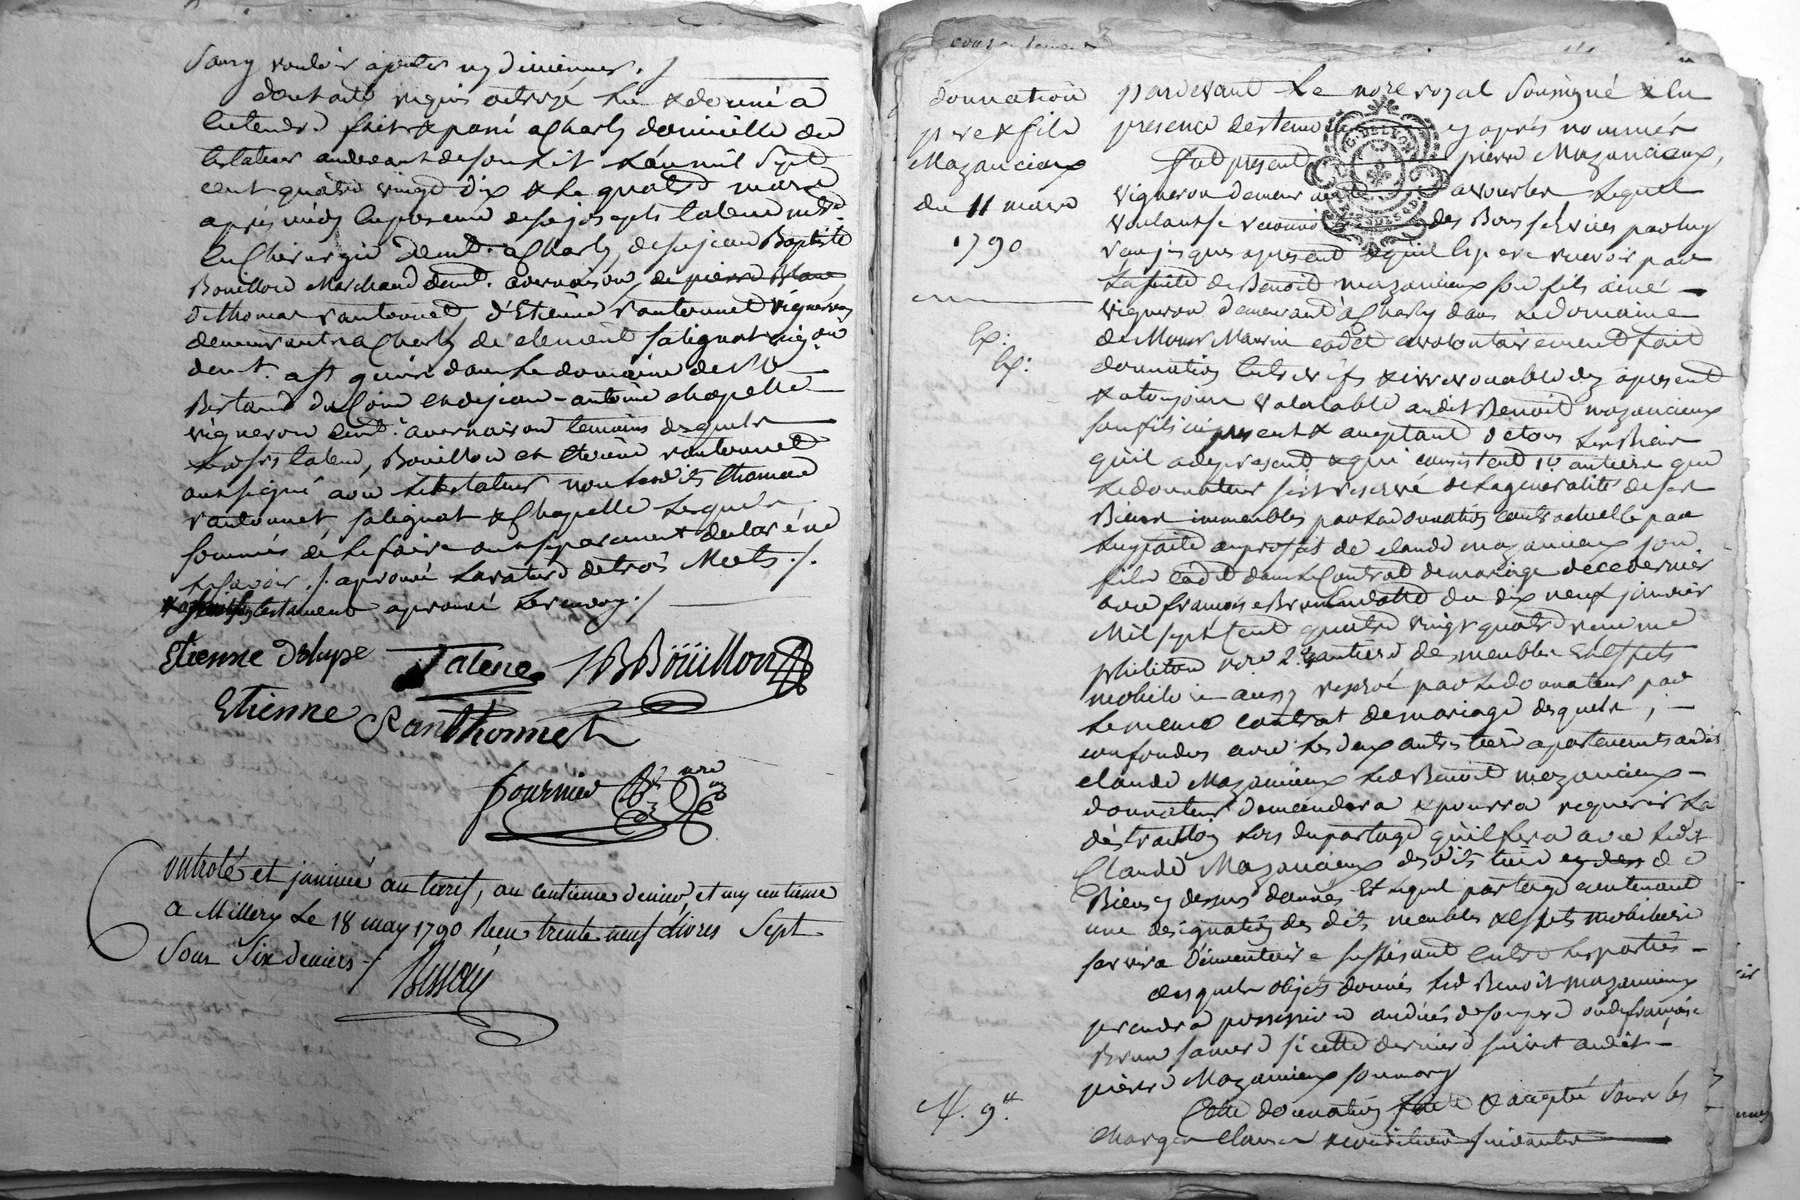 Sans y vouloir ajouter ny diminuer ./.
dont acte requis octroyé lu & donné a
entendre fait & passé a Charly domicille du
testateur au devant de son lit l'an mil Sept
cent quatre vingt dix & le quatre mars
après midy en presence de sr joseph talene me
en Chirurgie demt. a Charly, de sr jean Baptiste
Bouillon Marchand demt. a vernaison, de pierre Blanc
de thomas rantonnet, d'Etienne rantonnet vignerons
demeurants a Charly de clement salignat vigon
demt. a st genis dans le domaine de
Bertand du Coin et de jean-antoine chapelle
vigneron demt. a vernaison temoins desquels
les srs talene, Bouillon et Etienne rantonnet
ont signé avec le testateur non lesdits thomas
rantonnet salignat & Chapelle lesquels
sommés de le faire ont separement declaré ne
le savoir ./. aprouvé la rature de trois Mots ./.
testament aprouvé le renvoy ./.
Etienne Dehype Talene JB Boüillon
Etienne Ranthonnet
fournier nre
Controlé et insinué au tarif, au centieme denier, et my centieme
a Millery le 18 may 1790 Reçu trente neuf Livres Sept
Sous Six deniers ./.
donnation
pre & fils
Mazancieux
du 11 mars
1790
Ex:
Ex:
M. 9tt
pardevant Le nore royal Soussigné & en
presence des temoins cy après nommés
fut present pierre Mazancieux,
vigneron demeurant a vourles Lequel
voulant se reconnoitre des Bons services par luy
reçus jusques apresent & qu'il espere recevoir par
la suite de Benoit mazancieux son fils ainé
vigneron demeurant a Charly dans le domaine
de Monsr Maurin cadet a volontairement fait
donnation entre vifs & irrevocable dez apresent
& a toujours valable audit Benoit mazancieux
son fils ici present & acceptant de tous les Biens
qu'il a de present & qui consistent 1o. au tiers que
le donnateur s'est reservé de la generalité de ses
Biens immeubles par la donnation contractuelle par
luy faite au profit de claude mazancieux son
fils cadet dans le Contrat de mariage de ce dernier
avec françoise Brun en datte du dix neuf janvier
Mil sept Cent quatre vingt quatre reçu me
nore 2o. au tiers des meubles et effets
mobiliers aussy reservé par le donnateur par
le meme contrat de mariage desquels,
confondus avec les deux autres tiers apartenants audit
claude Mazancieux led Benoit mazancieux
donnateur demandera & pourra requerir la
distraction lors du partage qu'il fera avec ledit
Claude Mazancieux desdits tiers
Biens cy dessus donnés et lequel partage contenant
une designation des dits meubles & effets mobiliers
servira d'inventaire suffisant entre les parties
desquels objets donnés led Benoit mazancieux
prendra possession au décès de son pere ou de françoise
Brun sa mere si cette derniere survit audit
pierre Mazancieux son mary
Cette donnation faite & acceptée sous les
charges clauses & conditions suivantes